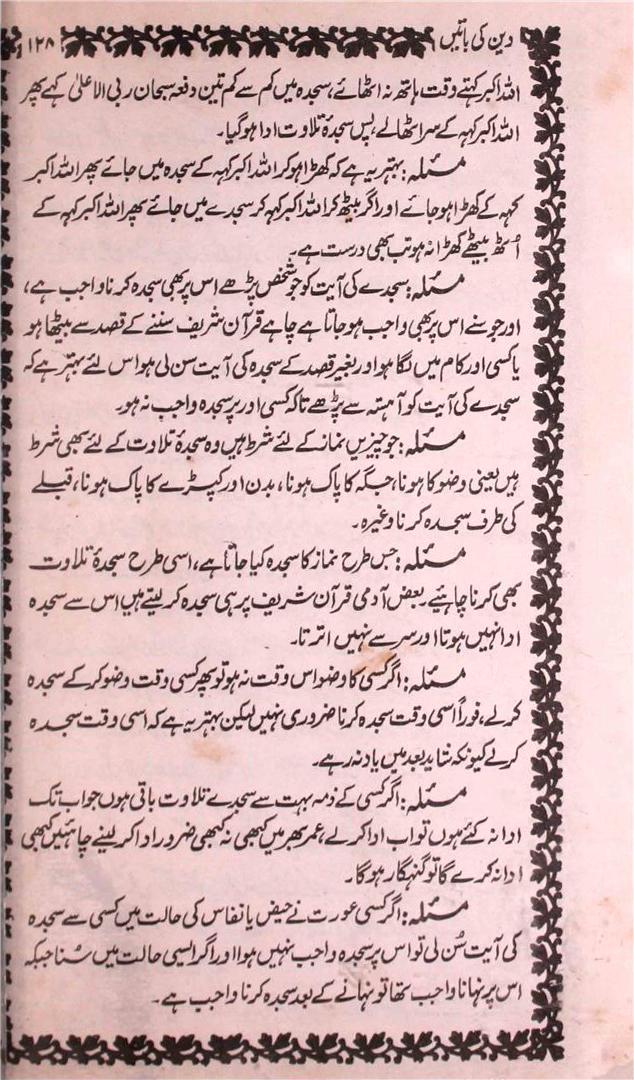 دین کی باتیں ۱۲۸
اللہ اکبر کہتے وقت ہاتھ نہ اٹھائے، سجدہ میں کم سے کم تین دفعہ سبحان ربی الاعلیٰ کہے پھر
اللہ اکبر کہہ کے سر اٹھالے، پس سجدۂ تلاوت ادا ہوگیا۔
مسئلہ: بہتر یہ ہے کہ کھڑا ہو کر اللہ اکبر کہہ کے سجدہ میں جائے پھر اللہ اکبر
کہہ کے کھڑا ہو جائے اور اگر بیٹھ کر اللہ اکبر کہہ کر سجدے میں جائے پھر اللہ اکبر کہہ کے
اُٹھ بیٹھے کھڑا نہ ہو تب بھی درست ہے۔
مسئلہ: سجدے کی آیت کو جو شخص پڑھے اس پر بھی سجدہ کرنا واجب ہے،
اور جو سنے اس پر بھی واجب ہو جاتا ہے چاہے قرآن شریف سننے کے قصد سے بیٹھا ہو
یا کسی اور کام میں لگا ہو اور بغیر قصد کے سجدہ کی آیت سن لی ہو اس لئے بہتر ہے کہ
سجدے کی آیت کو آہستہ سے پڑھے تاکہ کسی اور پر سجدہ واجب نہ ہو۔
مسئلہ: جو چیزیں نماز کے لئے شرط ہیں وہ سجدۂ تلاوت کے لئے بھی شرط
ہیں یعنی وضو کا ہونا، جگہ کا پاک ہونا، بدن اور کپڑے کا پاک ہونا، قبلے
کی طرف سجدہ کرنا وغیرہ۔
مسئلہ: جس طرح نماز کا سجدہ کیا جاتا ہے، اسی طرح سجدۂ تلاوت
بھی کرنا چاہئیے۔ بعض آدمی قرآن شریف پر ہی سجدہ کر لیتے ہیں اس سے سجدہ
ادا نہیں ہوتا اور سر سے نہیں اترتا۔
مسئلہ: اگر کسی کا وضو اس وقت نہ ہو تو پھر کسی وقت وضو کر کے سجدہ
کر لے، فوراً اسی وقت سجدہ کرنا ضروری نہیں لیکن بہتر یہ ہے کہ اسی وقت سجدہ
کر لے کیونکہ شاید بعد میں یاد نہ رہے۔
مسئلہ: اگر کسی کے ذمہ بہت سے سجدے تلاوت باقی ہوں جو اب تک
ادا نہ کئے ہوں تو اب ادا کر لے، عمر بھر میں کبھی نہ کبھی ضرور ادا کر لینے چاہئیں کبھی
ادا نہ کرے گا تو گنہگار ہو گا۔
مسئلہ: اگر کسی عورت نے حیض یا نفاس کی حالت میں کسی سے سجدہ
کی آیت سُن لی تو اس پر سجدہ واجب نہیں ہوا اور اگر ایسی حالت میں سُنا جبکہ
اس پر نہانا واجب تھا تو نہانے کے بعد سجدہ کرنا واجب ہے۔